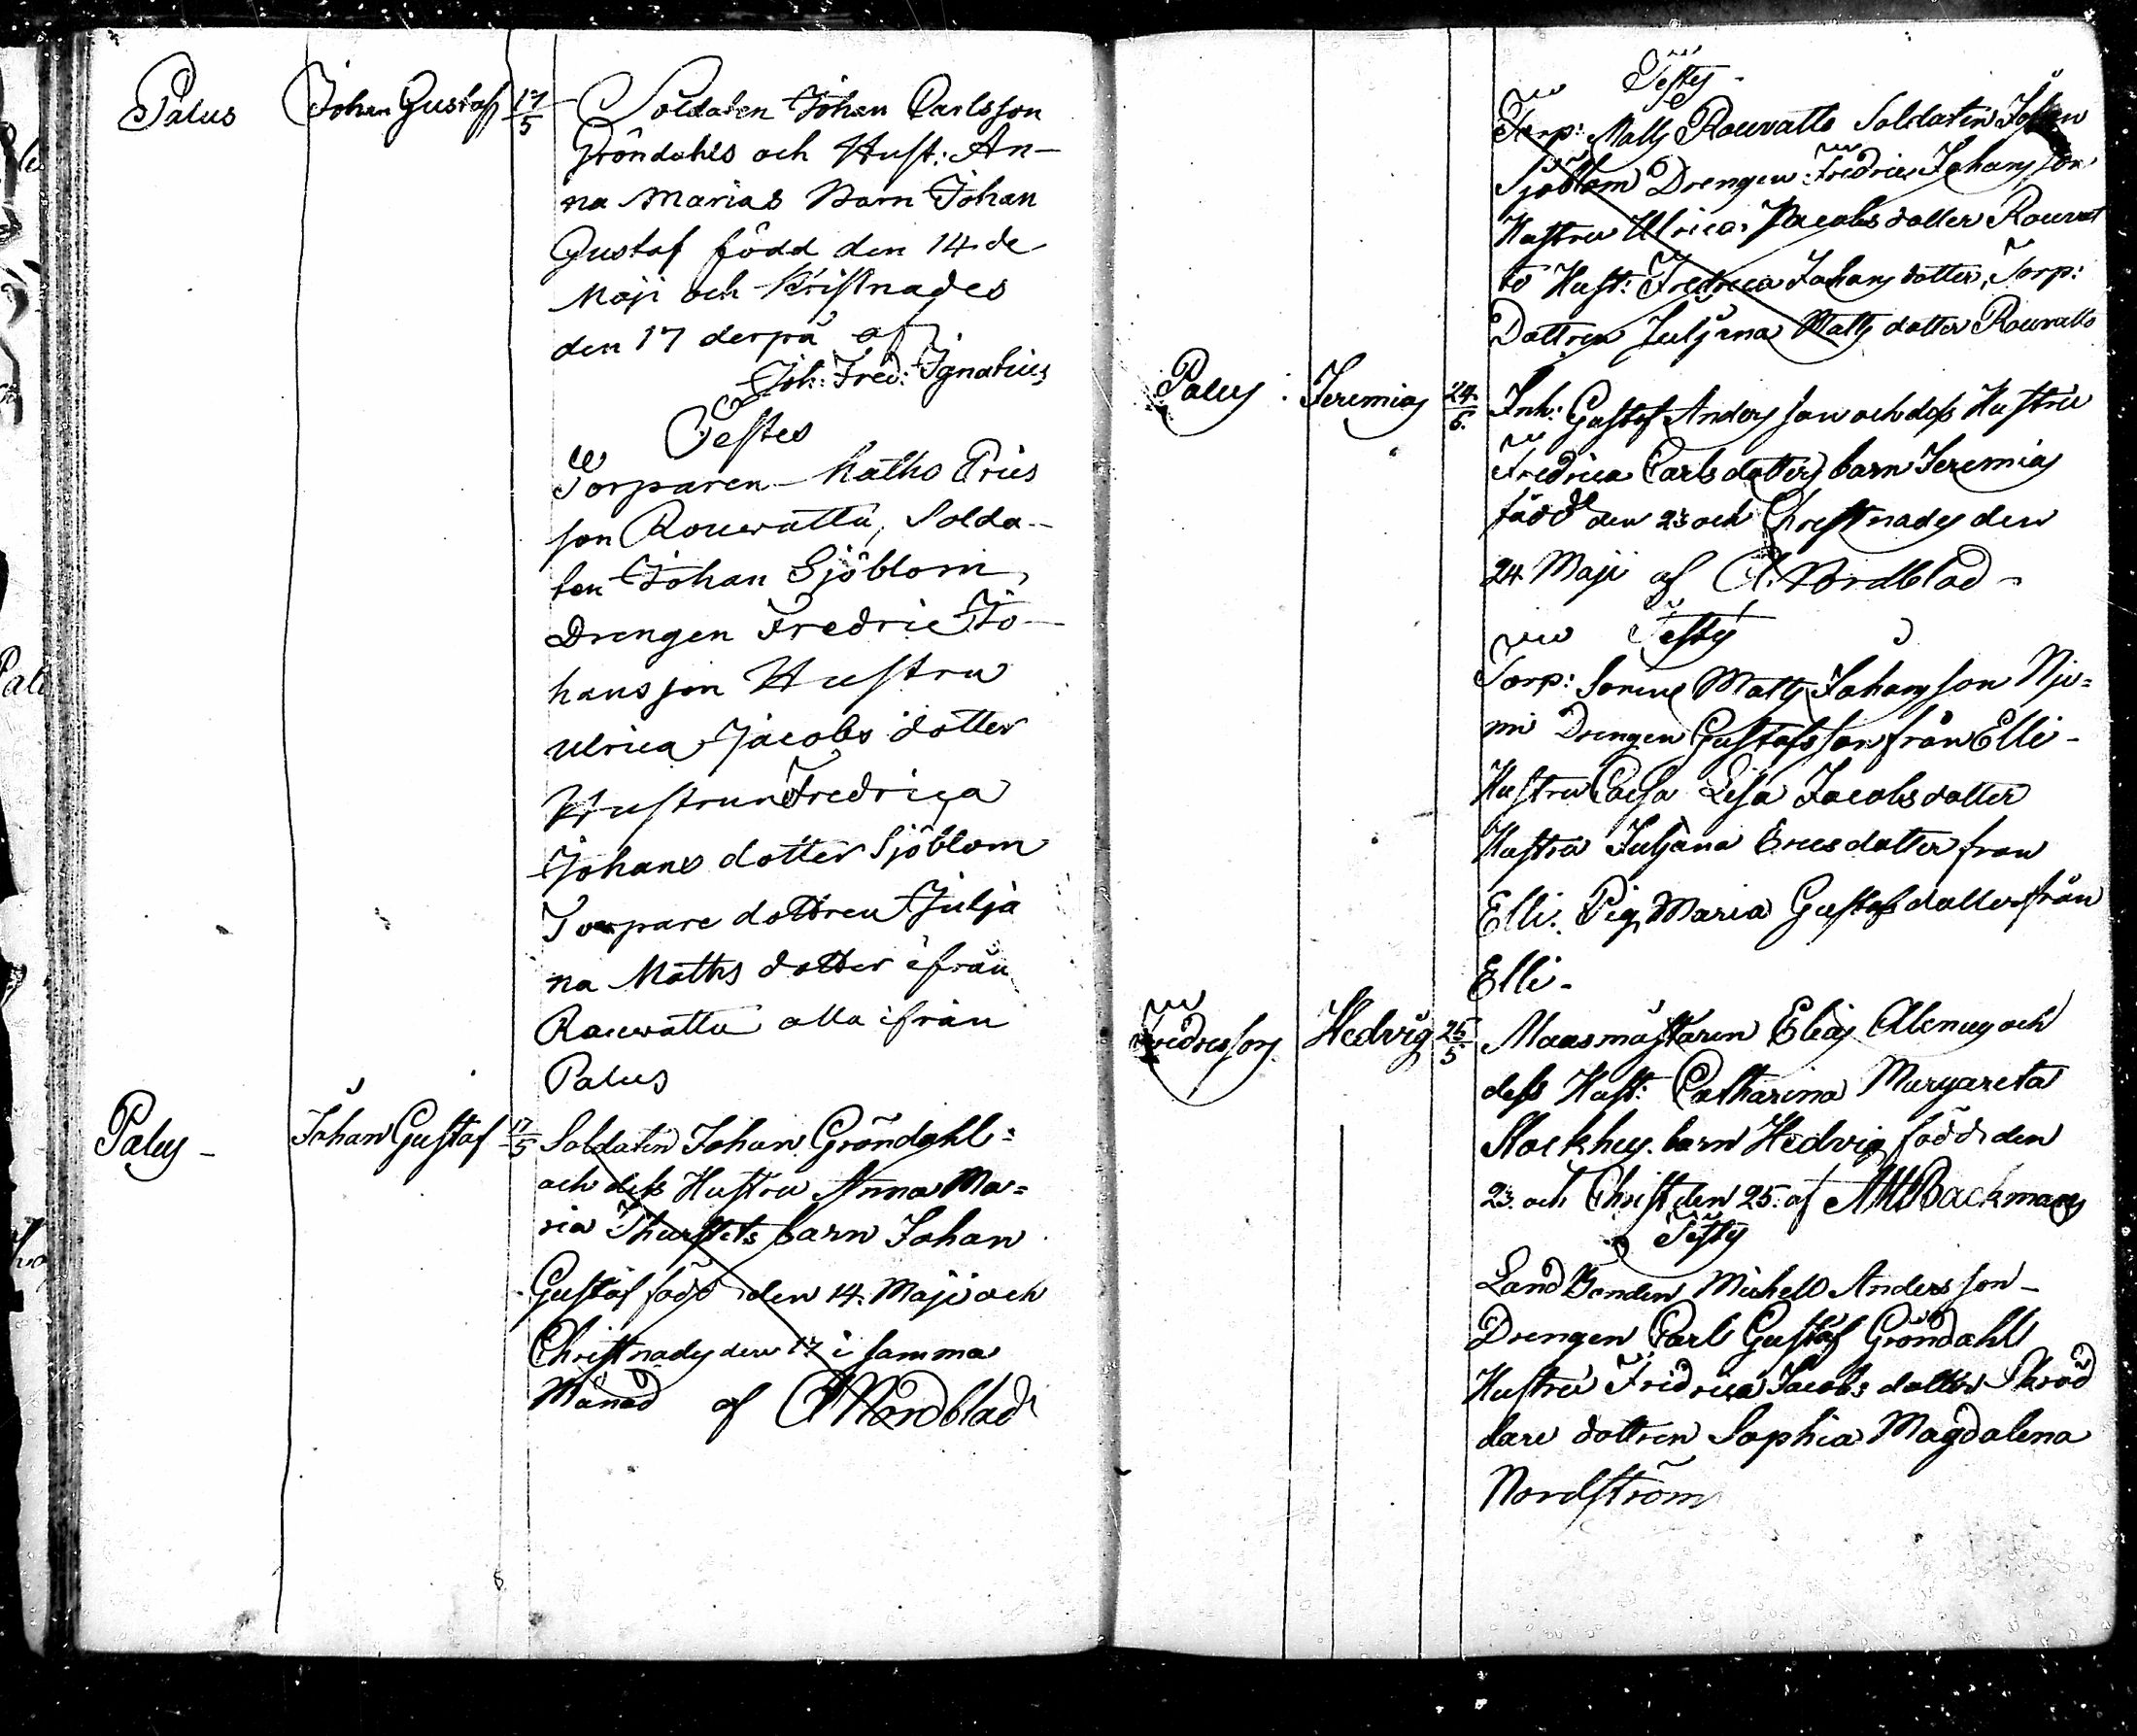 Palus Johan Gustaf 17/5 Soldaten Johan Carlsson
Gröndahls och Hust: An-
na Marias Barn Johan
Gustaf född den 14 de
Maji och Kristnades
den 17 derpå af
Joh: Fred: Ignatius
Testes
Torparen Maths Erics
son Rouvattu, Solda-
ten Johan Sjöblom
Drengen Fredric Jo-
hansson Hustru
Ulrica Jacobs dotter
Hustrun Fredrica
Johans dotter Sjöblom
Torpare dottren Julja
na Maths dotter ifrån
Rouvattu alla ifrån
Palus
Palus - Johan Gustaf 17/5 Soldaten Johan Gröndahl=
och dess Hustru Anna Ma=
ria barn Johan
Gustaf född den 14. Maji och
Christnades den 17 i samma
Månad af A Nordblad
Testes -
Torp: Matts Rouvatto Soldaten Johan
Sjöblom Drengen Fredric Johansson
Hustru Ulrica Jacobsdotter Rouvat
to Hust: Fredrica Johansdotter, Torp:
Dottren Juljana Matts dotter Rouvatto
Palus Jeremias 24/6. Inh: Gustaf Andersson och dess Hustru
Fredrica Carlsdotters barn Jeremias
född den 23 och Christnades den
24 Maji af A. Nordblad -
Testes
Torp: Sonen Matts Johansson Nju=
mi Drengen Gustafsson från Elli -
Hustru Caisa Lisa Jacobsdotter
Hustru Juljana Ericsdotter från
Elli. Pig. Maria Gustafsdotter från
Elli -
Fredricsfors Hedvig 25/5 Masmästaren Elias Alenius och
dess Hust: Catharina Margareta
barn Hedvig född den
23. och Christ den 25. af Backman
Testes
Land Bonden Michell Andersson -
Drengen Carl Gustaf Gröndahl
Hustru Fridrica Jacobs dotter Skräd
dare dottren Sophia Magdalena
Nordström